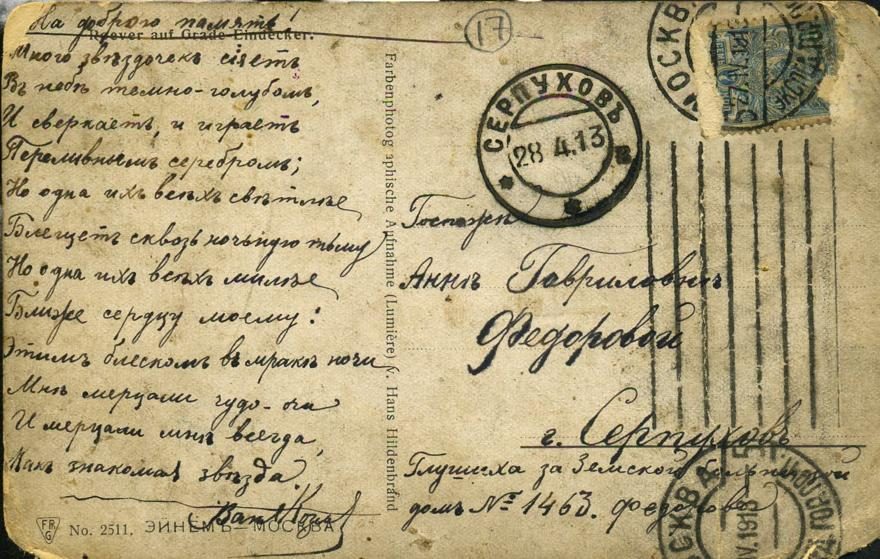 На доброю память!
Roever auf Grade-Eindecker.
Много звѣздочекъ сіяетъ
Въ небѣ темно-голубомъ,
И сверкаетъ, и играетъ
Переливнымъ серебромъ;
Но одна ихъ всѣхъ свѣтлѣе
Блещетъ сквозь ночьную тьму
Но одна ихъ всѣхъ милѣе
Ближе сердцу моему!
Этимъ блескомъ въ мракѣ ночи
Мнѣ мерцали чудо-очи
И мерцали мнѣ всегда,
Какъ знакомая звѣзда.
FR G
No. 2511. ЭЙНЕМЪ — МОСКВА
Farbenphotographische Aufnahme (Lumière) v. Hans Hildenbrand
17
СЕРПУХОВЪ
28 4.13
МОСКВА
Госпожѣ
Аннѣ Гавриловнѣ
Федоровой
г. Серпуховъ
Глушиха за Земской больницой
домъ № 1463. Федорова
МОСКВА
IV.1913